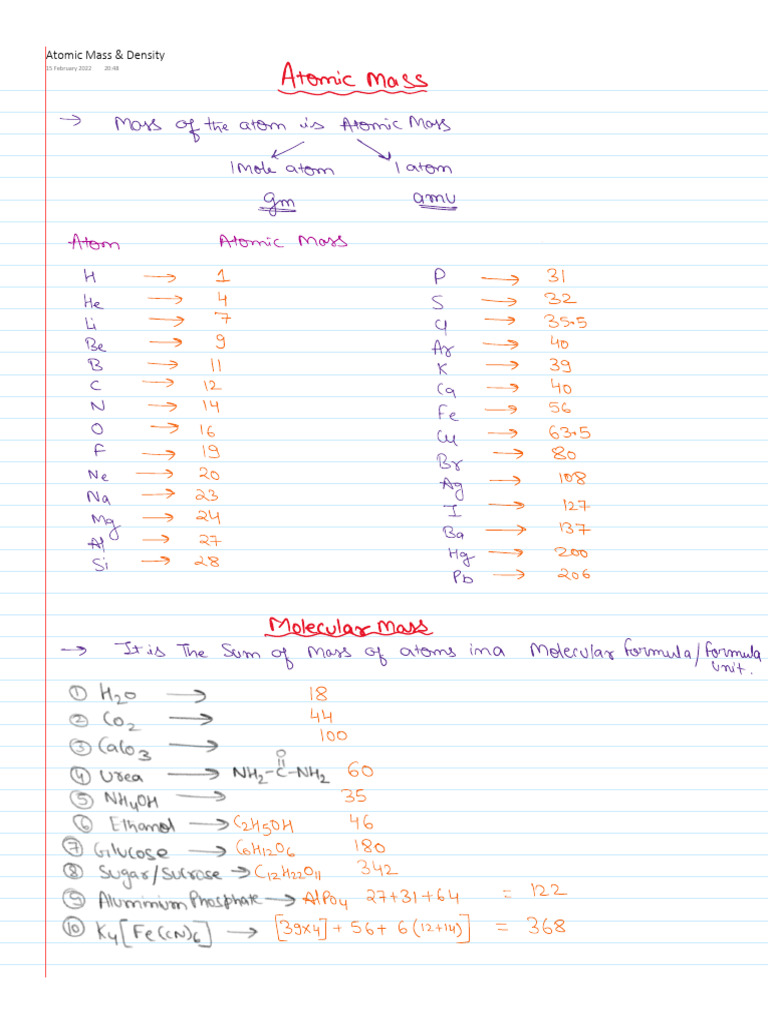 Atomic Mass & Density
15 February 2022 20:48
Atomic Mass
→ Mass of the atom is Atomic Mass
1 Mole atom 1 atom
gm amu
Atom Atomic Mass
H → 1
He → 4
Li → 7
Be → 9
B → 11
C → 12
N → 14
O → 16
F → 19
Ne → 20
Na → 23
Mg → 24
Al → 27
Si → 28
P → 31
S → 32
Cl → 35.5
Ar → 40
K → 39
Ca → 40
Fe → 56
Cu → 63.5
Br → 80
Ag → 108
I → 127
Ba → 137
Hg → 200
Pb → 206
Molecular Mass
→ It is The Sum of Mass of atoms in a Molecular formula/formula
unit.
① H2O → 18
② CO2 → 44
③ CaCO3 → 100
O
④ Urea → NH2-C-NH2 60
⑤ NH4OH → 35
⑥ Ethanol → C2H5OH 46
⑦ Glucose → C6H12O6 180
⑧ Sugar/Sucrose → C12H22O11 342
⑨ Aluminium Phosphate → AlPO4 27+31+64 = 122
⑩ K4[Fe(CN)6] → [39×4] + 56 + 6(12+14)] = 368